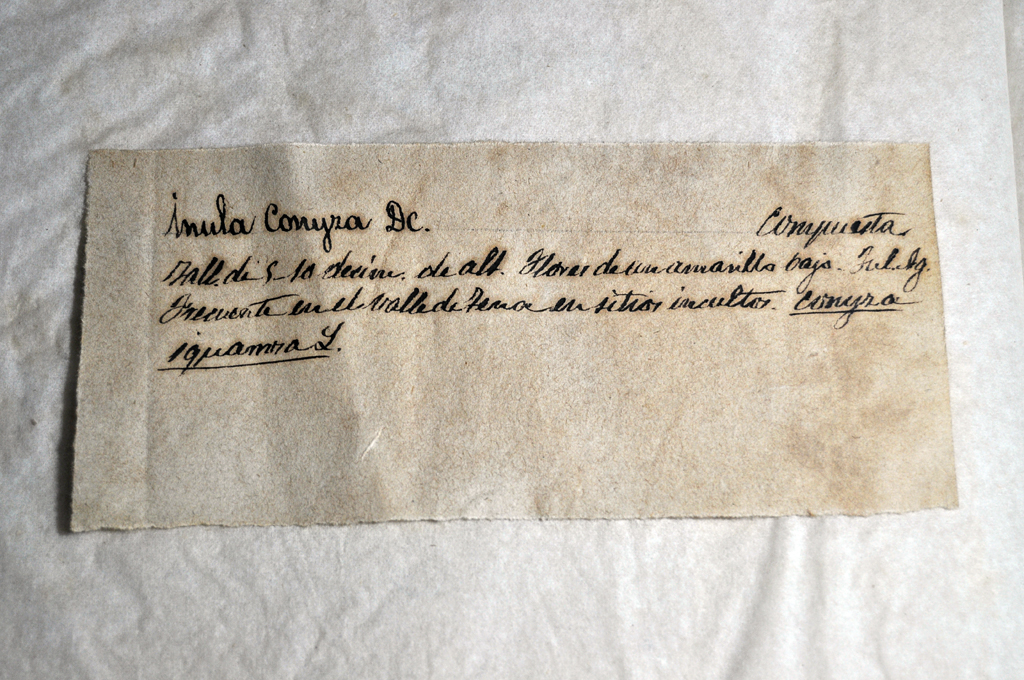 Inula Conyza Dc. Compuesta.
Tall. de 5-10 decím. de alt. Flores de un amarillo bajo. Jul. Ag.
Frecuente en el valle de Tena en sitios incultos. Conyza
squamosa L.